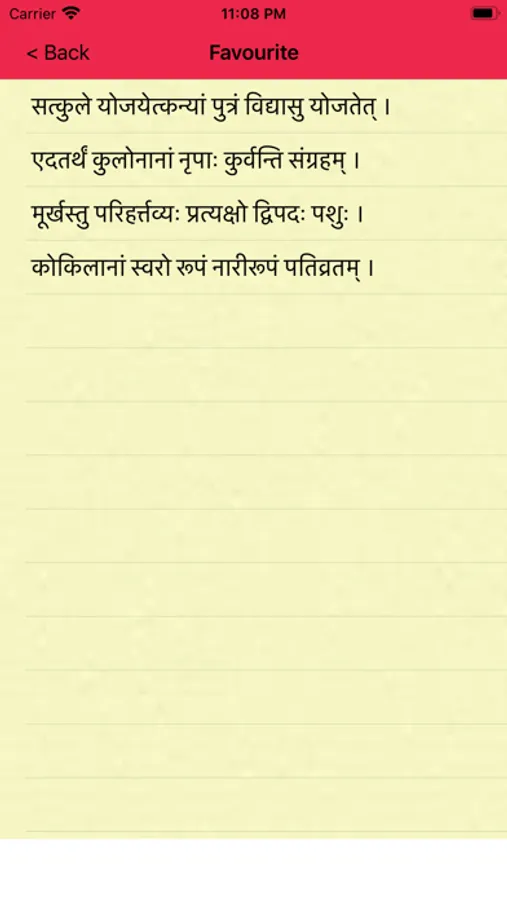 Carrier 11:08 PM
< Back Favourite
सत्कुले योजयेत्कन्यां पुत्रं विद्यासु योजतेत् ।
एदतर्थं कुलोनानां नृपाः कुर्वन्ति संग्रहम् ।
मूर्खस्तु परिहर्त्तव्यः प्रत्यक्षो द्विपदः पशुः ।
कोकिलानां स्वरो रूपं नारीरूपं पतिव्रतम् ।